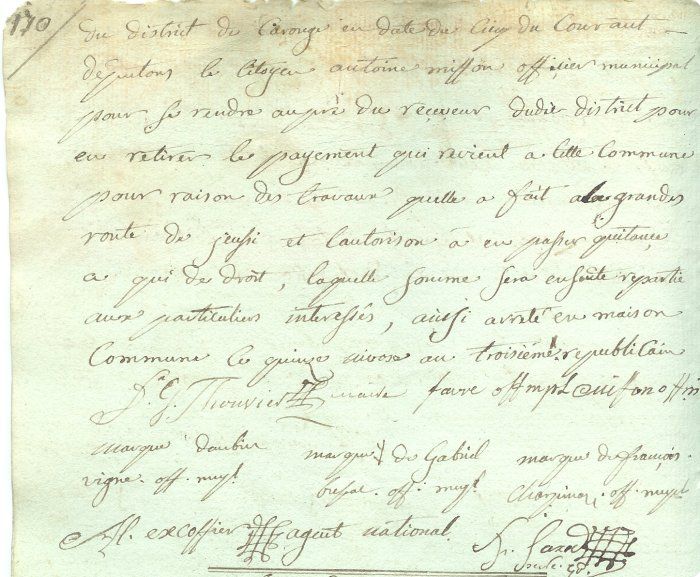 170
du district de Carouge en date du cinq du Courant
députons le Citoyen antoine miffon officier municipal
pour se rendre auprè du reçeveur dudit district pour
en retirer le payement qui revient a Cette Commune
pour raison des travaux quelle a fait a la grande
route de jussi et Lautorison à en passer quitançe
a qui de droit, laquelle somme sera ensuite repartie
aux particuliers interessés, ainsi arreté en maison
Commune le quinze nivose an troisiéme republicain
Thouvier maire favre off mpl miffon off
marque d'aubin marque de Gabriel marque de françois
vigne. off. mupl off. mupl off. mupl
excoffier agent national